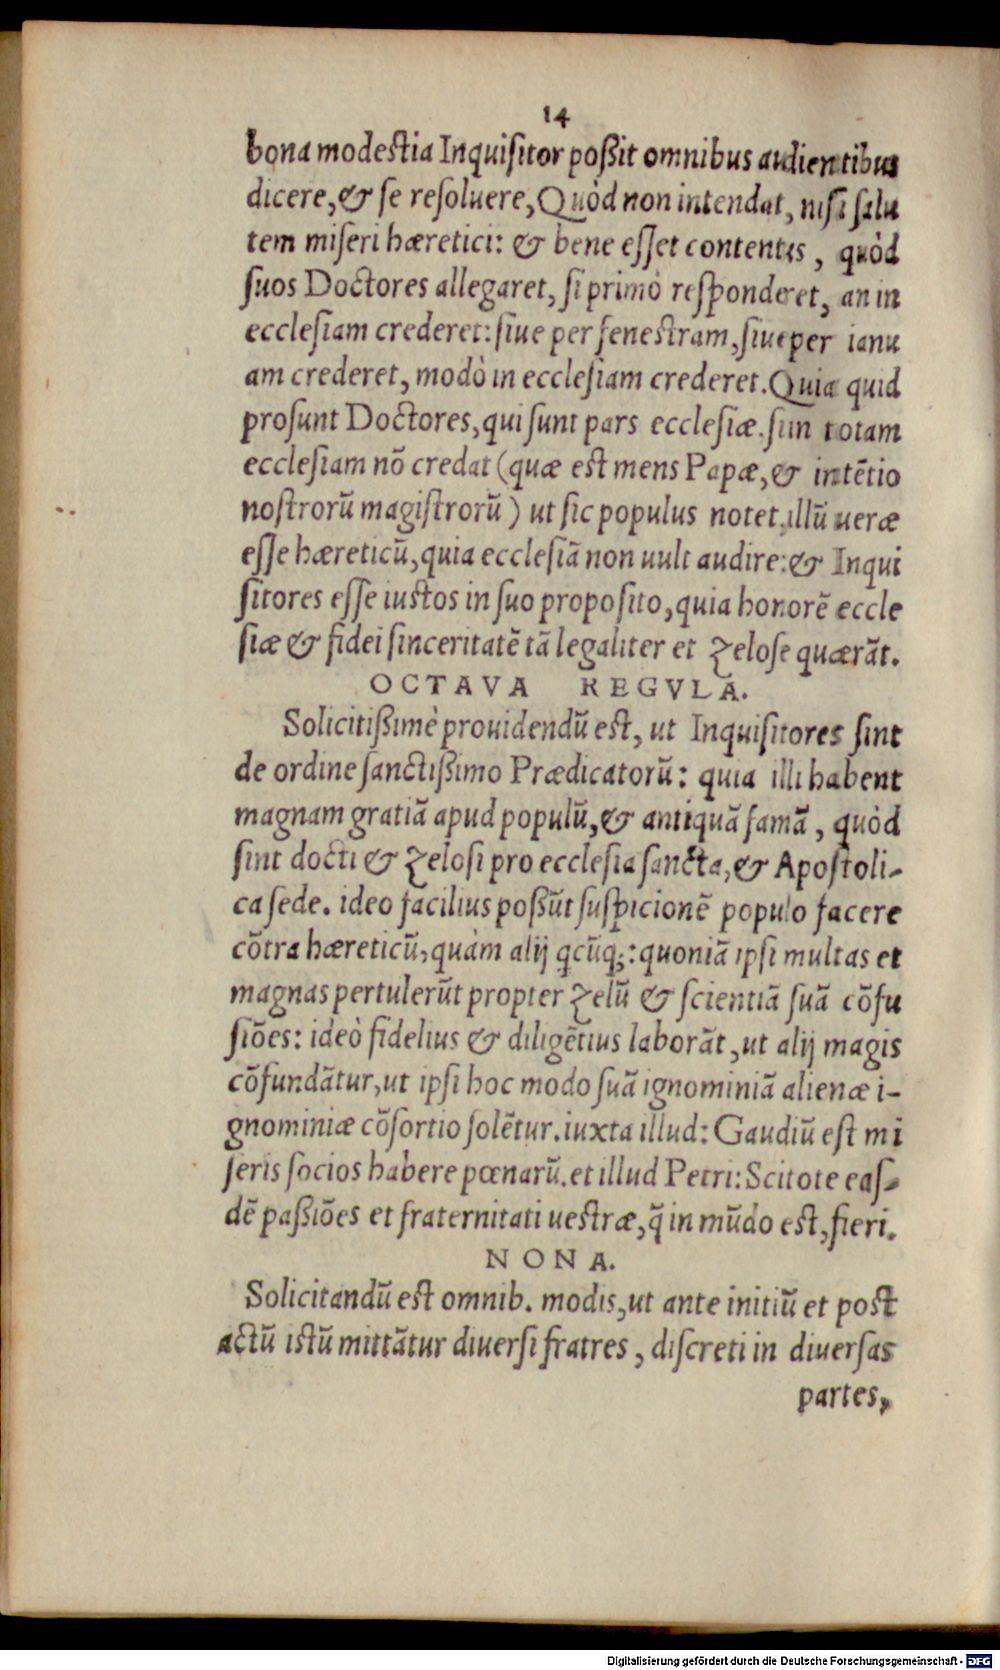 14
bona modestia Inquisitor poßit omnibus audientibus
dicere, & se resoluere, Quòd non intendat, nisi salu
tem miseri hæretici: & bene esset contentus, quòd
suos Doctores allegaret, si primò responderet, an in
ecclesiam crederet: siue per fenestram, siue per ianu
am crederet, modò in ecclesiam crederet. Quia quid
prosunt Doctores, qui sunt pars ecclesiæ. sim totam
ecclesiam nõ credat (quæ est mens Papæ, & intẽtio
nostrorũ magistrorũ) ut sic populus notet, illũ ueræ
esse hæreticũ, quia ecclesiã non uult audire: & Inqui
sitores esse iustos in suo proposito, quia honorẽ eccle
siæ & fidei sinceritatẽ tã legaliter et zelose quærãt.
OCTAVA REGVLA.
Solicitißimè prouidendũ est, ut Inquisitores sint
de ordine sanctißimo Prædicatorũ: quia illi habent
magnam gratiã apud populũ, & antiquã famã, quòd
sint docti & zelosi pro ecclesia sancta, & Apostoli-
ca sede. ideo facilius poßũt suspicionẽ populo facere
cõtra hæreticũ, quàm alij qcũq;: quoniã ipsi multas et
magnas pertulerũt propter zelũ & scientiã suã cõfu
siões: ideò fidelius & diligẽtius laborãt, ut alij magis
cõfundãtur, ut ipsi hoc modo suã ignominiã alienæ i-
gnominiæ cõsortio solẽtur. iuxta illud: Gaudiũ est mi
seris socios habere pœnarũ. et illud Petri: Scitote eas-
dẽ paßiões et fraternitati uestræ, q̃ in mũdo est, fieri.
NONA.
Solicitandũ est omnib. modis, ut ante initiũ et post
actũ istũ mittãtur diuersi fratres, discreti in diuersas
partes,
Digitalisierung gefördert durch die Deutsche Forschungsgemeinschaft - DFG